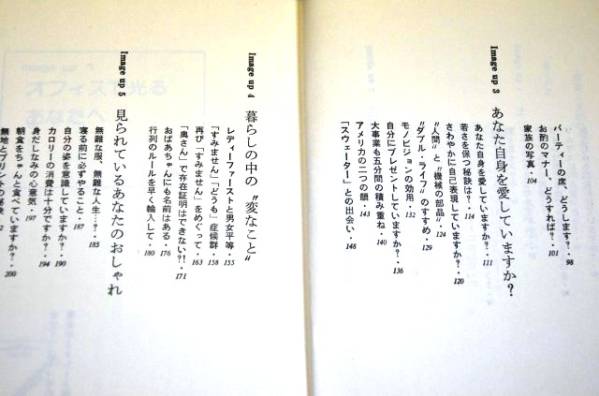 パーティーの席、どうします?・98
お酌のマナー、どうすれば?・101
家族の写真・104
Image up 3 あなた自身を愛していますか?
あなた自身を愛していますか?・111
若さを保つ秘訣は?・114
さわやかに自己表現していますか?・120
“人間”と“機械の部品”・124
“ダブル・ライフ”のすすめ・129
モノビジョンの効用・132
自分にプレゼントしていますか?・136
大事業も五分間の積み重ね・140
アメリカの二つの顔・143
「スウェーター」との出会い・148
Image up 4 暮らしの中の“変なこと”
レディーファーストと男女平等・155
「すみません」「どうも」症候群・158
再び「すみません」をめぐって・163
「奥さん」で存在証明はできない?!・171
おばあちゃんにも名前はある・176
行列のルールを早く輸入して・180
Image up 5 見られているあなたのおしゃれ
無難な服、無難な人生…?・185
寝る前に必ずやること・187
自分の姿を意識していますか?・190
カロリーの消費は十分ですか?・194
身だしなみの心意気・197
朝食をちゃんと食べていますか?・200
無地とプリントの